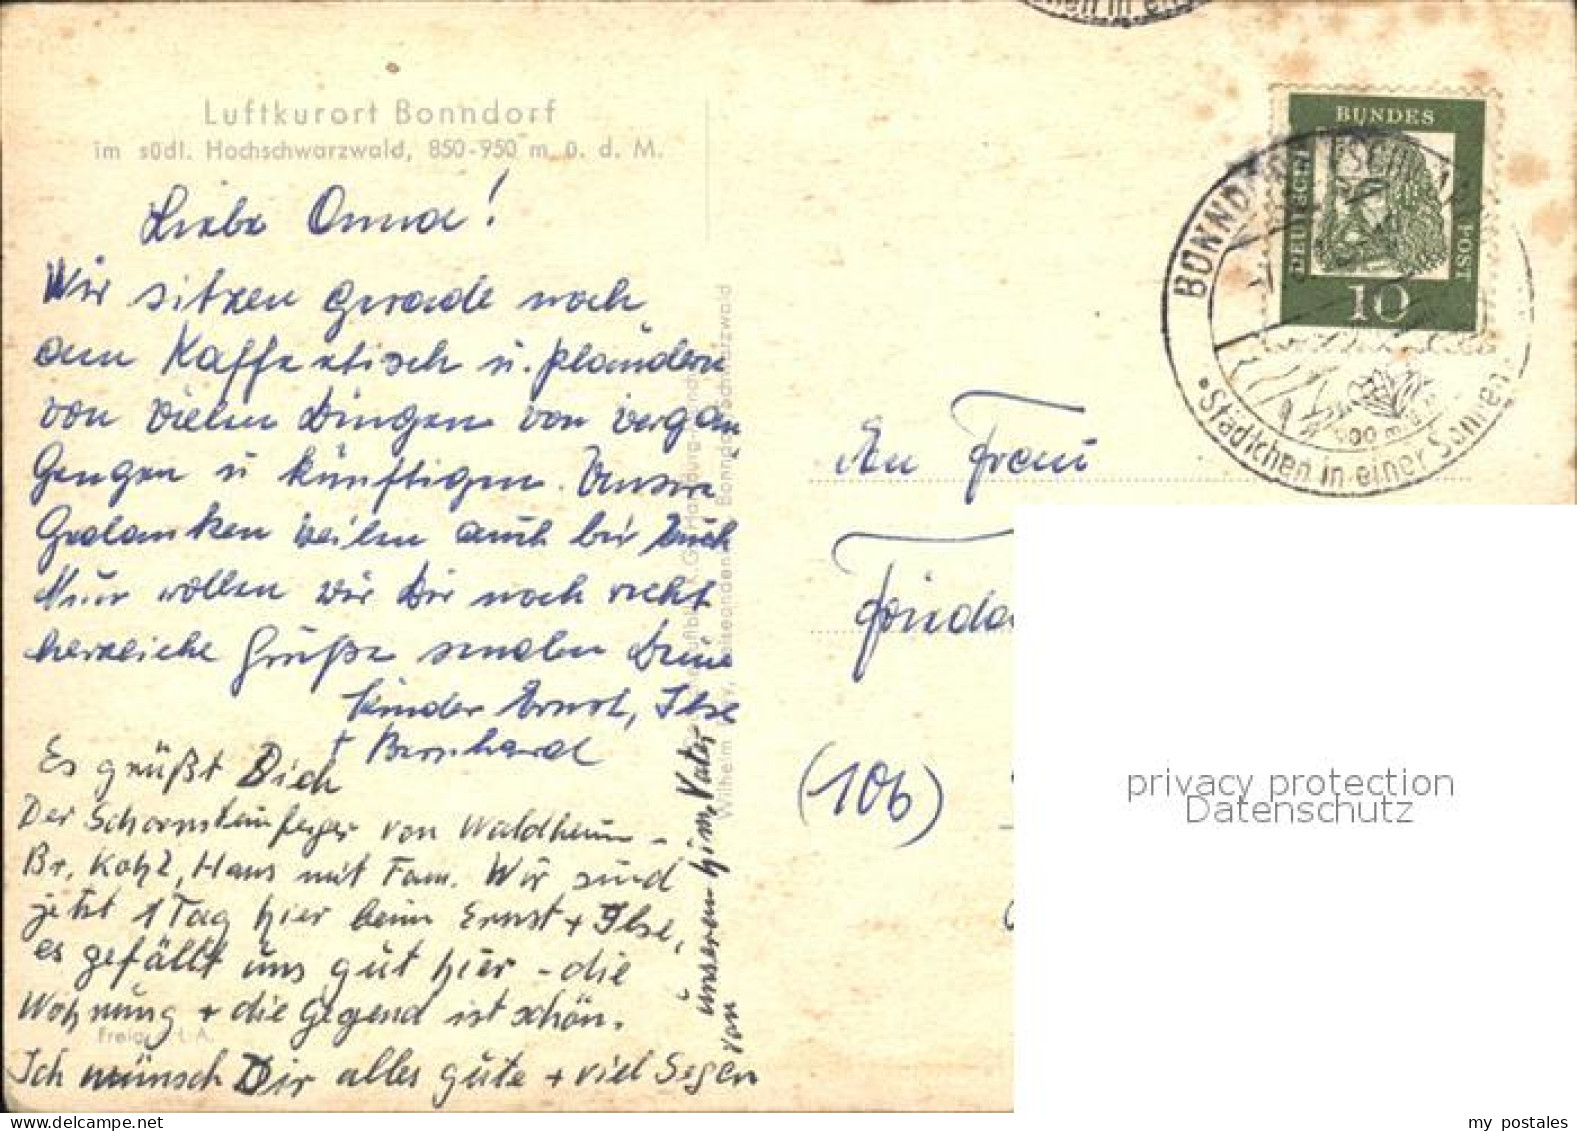 Luftkurort Bonndorf
im südl. Hochschwarzwald, 850-950 m ü. d. M.
Liebe Omma!
Wir sitzen gerade noch
am Kaffeetisch u. plaudern
von vielen Dingen von vergan
gengen u künftigen. Unsere
Gedanken weilen auch bei Euch
Nun wollen wir Dir noch recht
herzliche Grüße senden Deine
Kinder Ernst, Ilse
+ Bernhard
Es grüßt Dich
Der Schornsteinfeger von Waldheim -
Br. Kohl, Hans mit Fam. Wir sind
jetzt 1 Tag hier beim Ernst + Ilse,
es gefällt uns gut hier - die
Wohnung + die Gegend ist schön.
Ich wünsch Dir alles gute + viel Segen
von unserem him. Vater
Freig. L. A.
Wilhelm Bonndorf Schwarzwald
BUNDES
DEUTSCHE
POST
10
BONNDORF
Städtchen in einer Sonnen
An Frau
(10b)
privacy protection
Datenschutz
my postales
www.delcampe.net